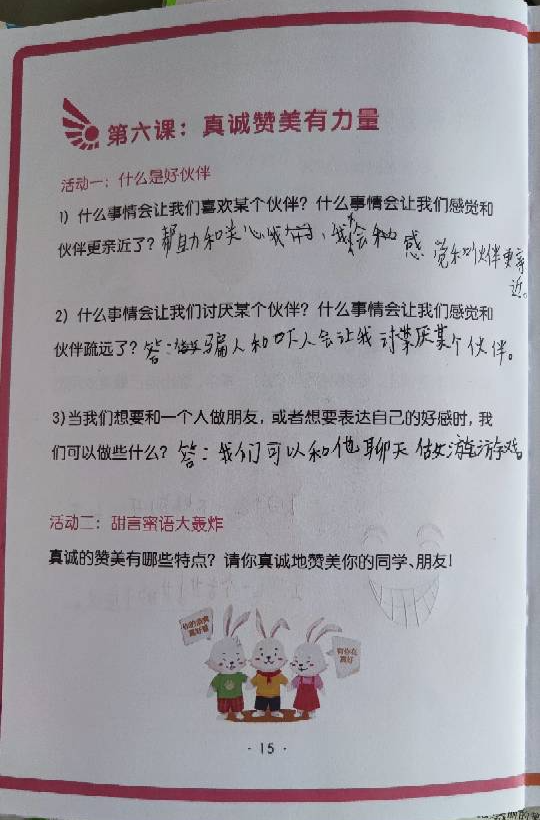 第六课：真诚赞美有力量
活动一：什么是好伙伴
1）什么事情会让我们喜欢某个伙伴？什么事情会让我们感觉和
伙伴更亲近了？帮助和关心我们，我会和感觉和伙伴更亲
近。
2）什么事情会让我们讨厌某个伙伴？什么事情会让我们感觉和
伙伴疏远了？答：做骗人和吓人会让我讨厌某个伙伴。
3)当我们想要和一个人做朋友，或者想要表达自己的好感时，我
们可以做些什么？答：我们可以和他聊天做游戏
活动二：甜言蜜语大轰炸
真诚的赞美有哪些特点？请你真诚地赞美你的同学、朋友！
真好看
有你在
真好
· 15 ·